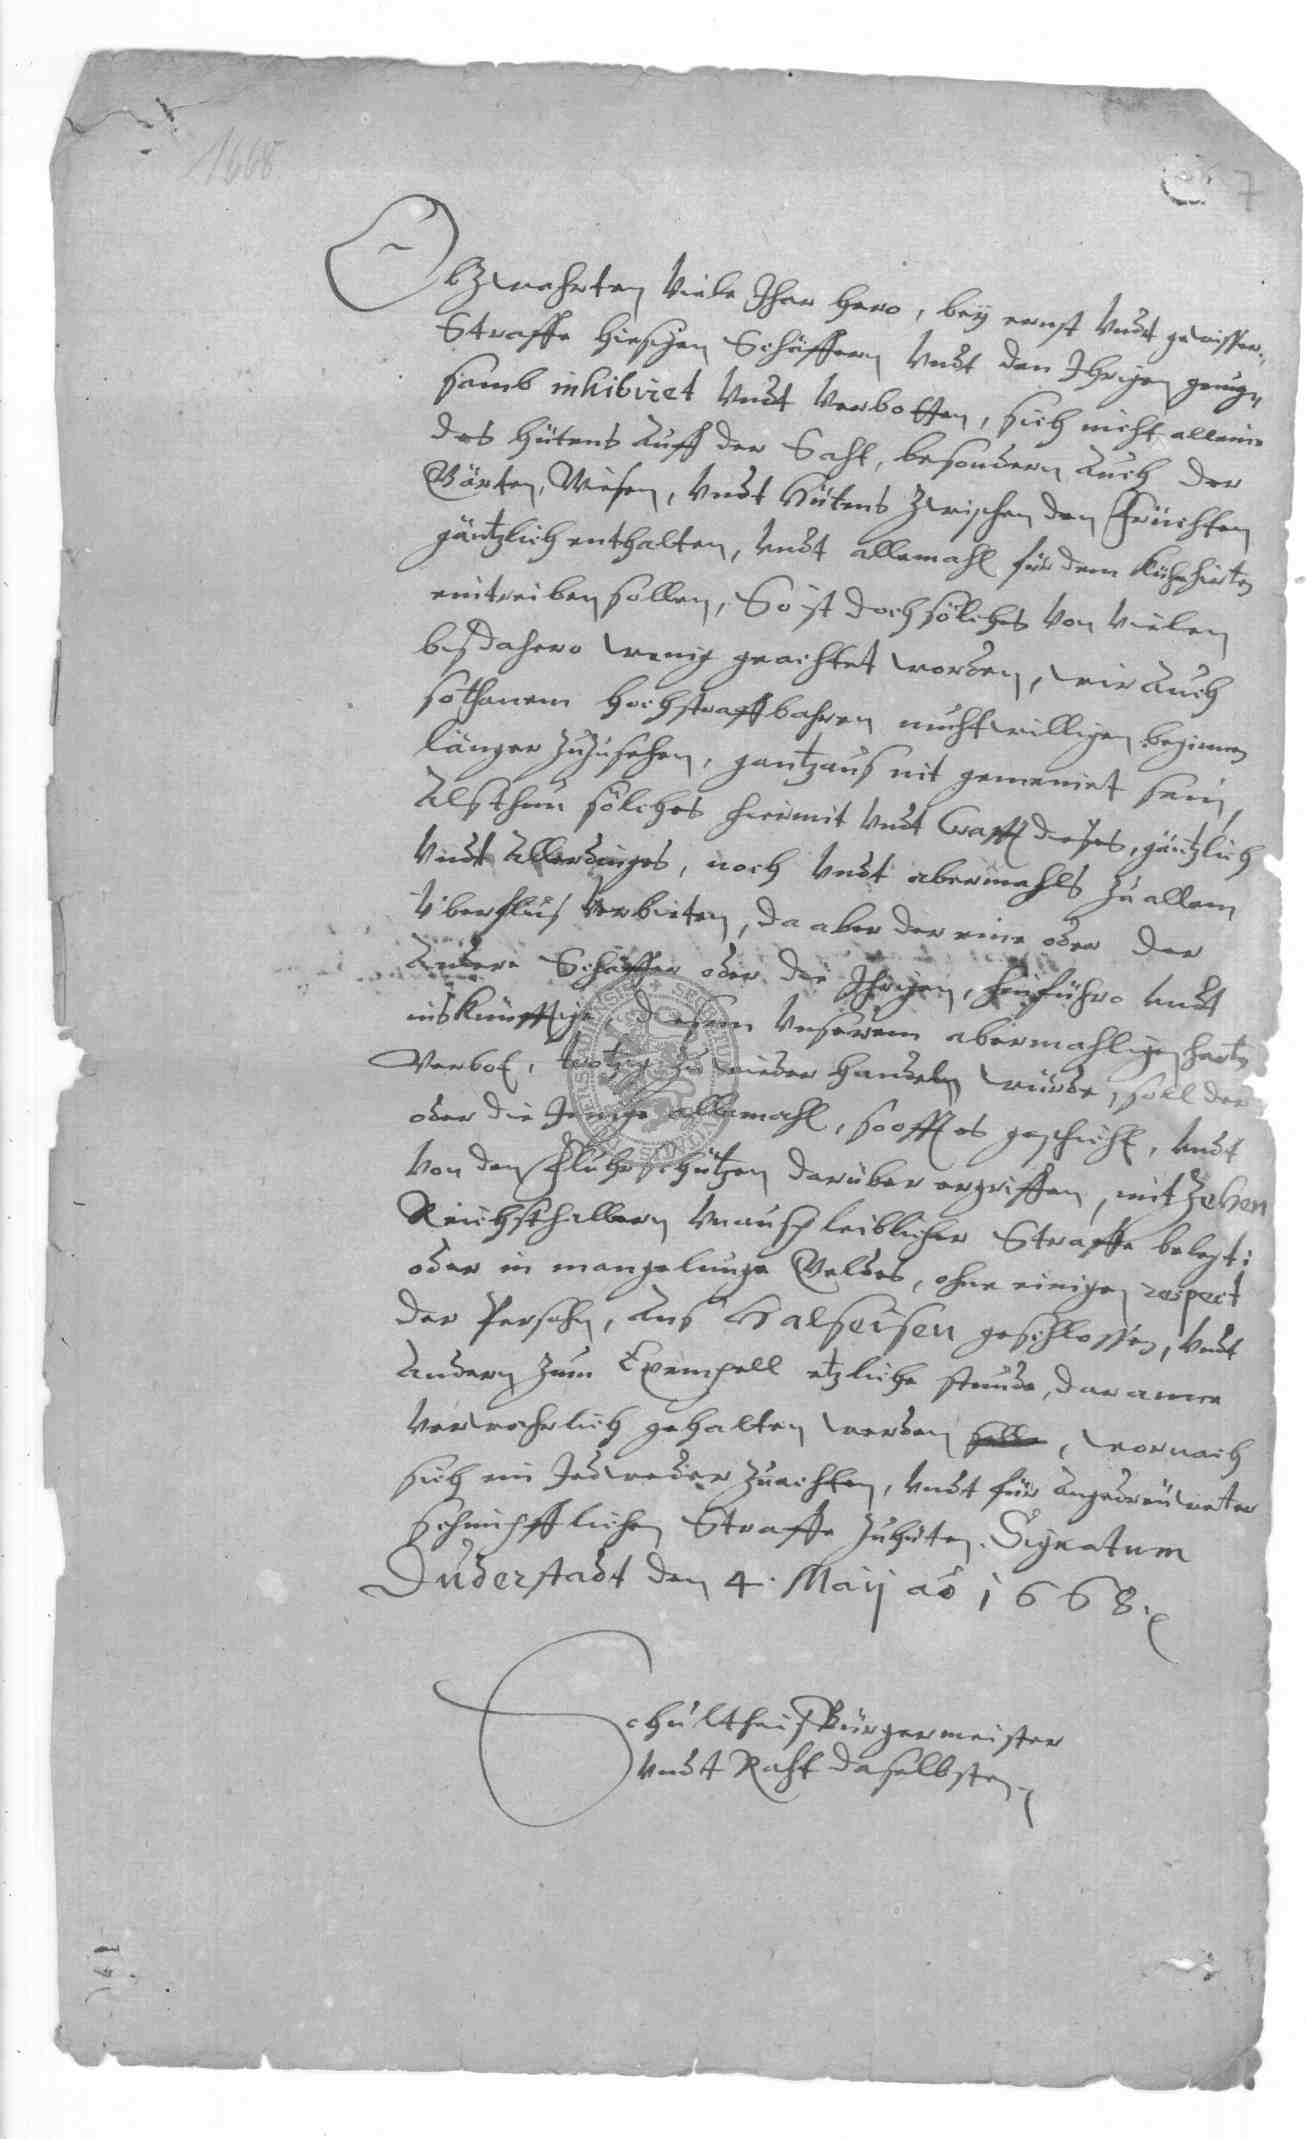 1668
7
Obzwahrten Viele Jhar hero, bey ernst Vndt gewisser
Straffe hiesigen Schäffern Vndt den Ihrigen genug=
samb inhibiret Vndt Verbotten, sich nicht alleine
des hütens auff der Saht, besondern auch der
Gärten, Wiesen, Vndt hütens zwischen den Früchten
gäntzlich enthalten, Vndt allemahl für dem Kühehirten
eintreiben sollen, So ist doch sölches Von Vielen
bißdahero wenig geachtet worden, wir auch
sothanem hochstraffbahren muhtwilligen beginnen
länger zuzusehen, gantzaus nit gemeinet sein,
Alß thun sölches hiermit Vndt Crafft dieses, gäntzlich
Vndt allerdinges, noch Vndt abermahls zu allem
Überfluß Verbieten, da aber der eine oder der
andere Schäffer oder die Ihrigen, hinführo Vndt
inskünfftige diesem Vnserem abermahligen harten
Verbot, trotzig zu wieder handeln würde, soll der
oder die Jenige allemahl, so offt es geschicht, Vndt
Von den Fluhrschützen darüber ergriffen, mit Zehen
Reichsthallern Vnaußbleiblicher Straffe belegt;
oder in mangelunge Geldes, ohne einigen respect
der Persohn, ans Halseisen geschlossen, Vndt
andern zum Exempell etzliche stunde, daranne
Verwahrlich gehalten werden, wornach
sich ein Jedweder zuachten, Vndt für angedreüweter
schimpfflichen Straffe zuhüten. Signatum
Duderstadt den 4. Maij ao 1668.
Schultheiß Bürgermeister
Vndt Raht daselbsten